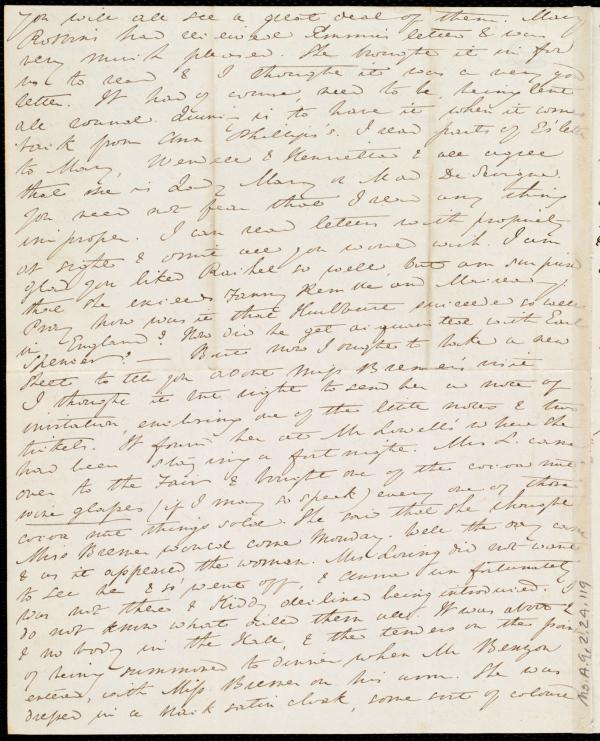 you will all see a great deal of them. Mary
Robbins had received Emma's letter & was
very much pleased. She brought it in for
us to read & I thought it was a very good
letter. It had of course, need to be, being lent
all round. is to have it when it comes
back from Ann Phillips's. I read parts of E's letter
to Mary, Wendell & Henrietta & all agree
that she is Lady Mary or Mad De Sevigne.
You need not fear that I read any thing
improper. I can read letters with propriety
at sight & omit all you would wish. I am
glad you liked Rachel so well, but am surprised
that she exceeds Fanny Kemble and Macready.
Pray how was it that Hurlburt succeeded so well
in England? How did he get acquainted with Earl
Spencer? — But now I ought to take a new
sheet to tell you about Miss Bremer's visit
I thought it but right to send her a note of
invitation, enclosing one of the little notes & two
tickets. It found her at Mr Lowell's where she
had been staying a fortnight. Mrs L. came
over to the Fair & bought one of the cocoa nut
wine glasses (if I may so speak) every one of those
cocoa nut things sold. She said that she thought
Miss Bremer would come Monday. Well the day came
& as it appeared the woman. Mrs Loring did not want
to see her & so went off, & unfortunately
was not there & Hiddy declined being introduced. I
do not know what ailed them all. It was about 2
& no body in the Hall, & the tenders on the point
of being summoned to dinner when Mr Benzon
entered, with Miss Bremer on his arm. She was
dressed in a black satin cloak, some sort of coloured
Ms.A.9.2.24.119